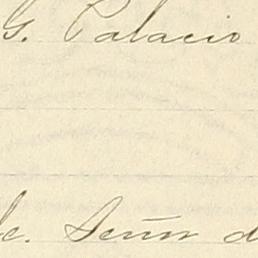 G. Palacio
de. Señor d